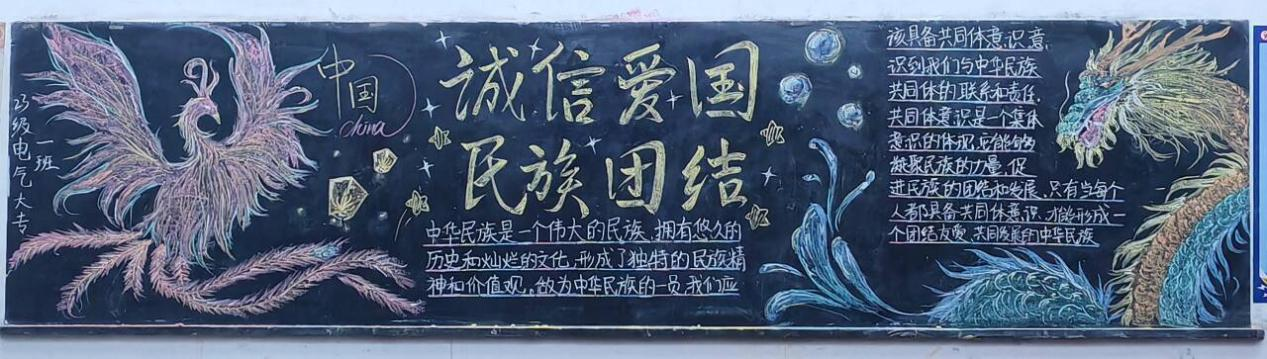 23级电气大专
一班
中国
china
誠信爱国
民族团结
中华民族是一个伟大的民族、拥有悠久的
历史和灿烂的文化,形成了独特的民族精
神和价值观,做为中华民族的一员,我们应
该具备共同体意识意
识到我们与中华民族
共同体的联系和责任.
共同体意识是一个集体
意识的体现,它能够
凝聚民族的力量,促
进民族的团结和发展、只有当每个
人都具备共同体意识,才能形成一
个团结友爱、共同发展的中华民族